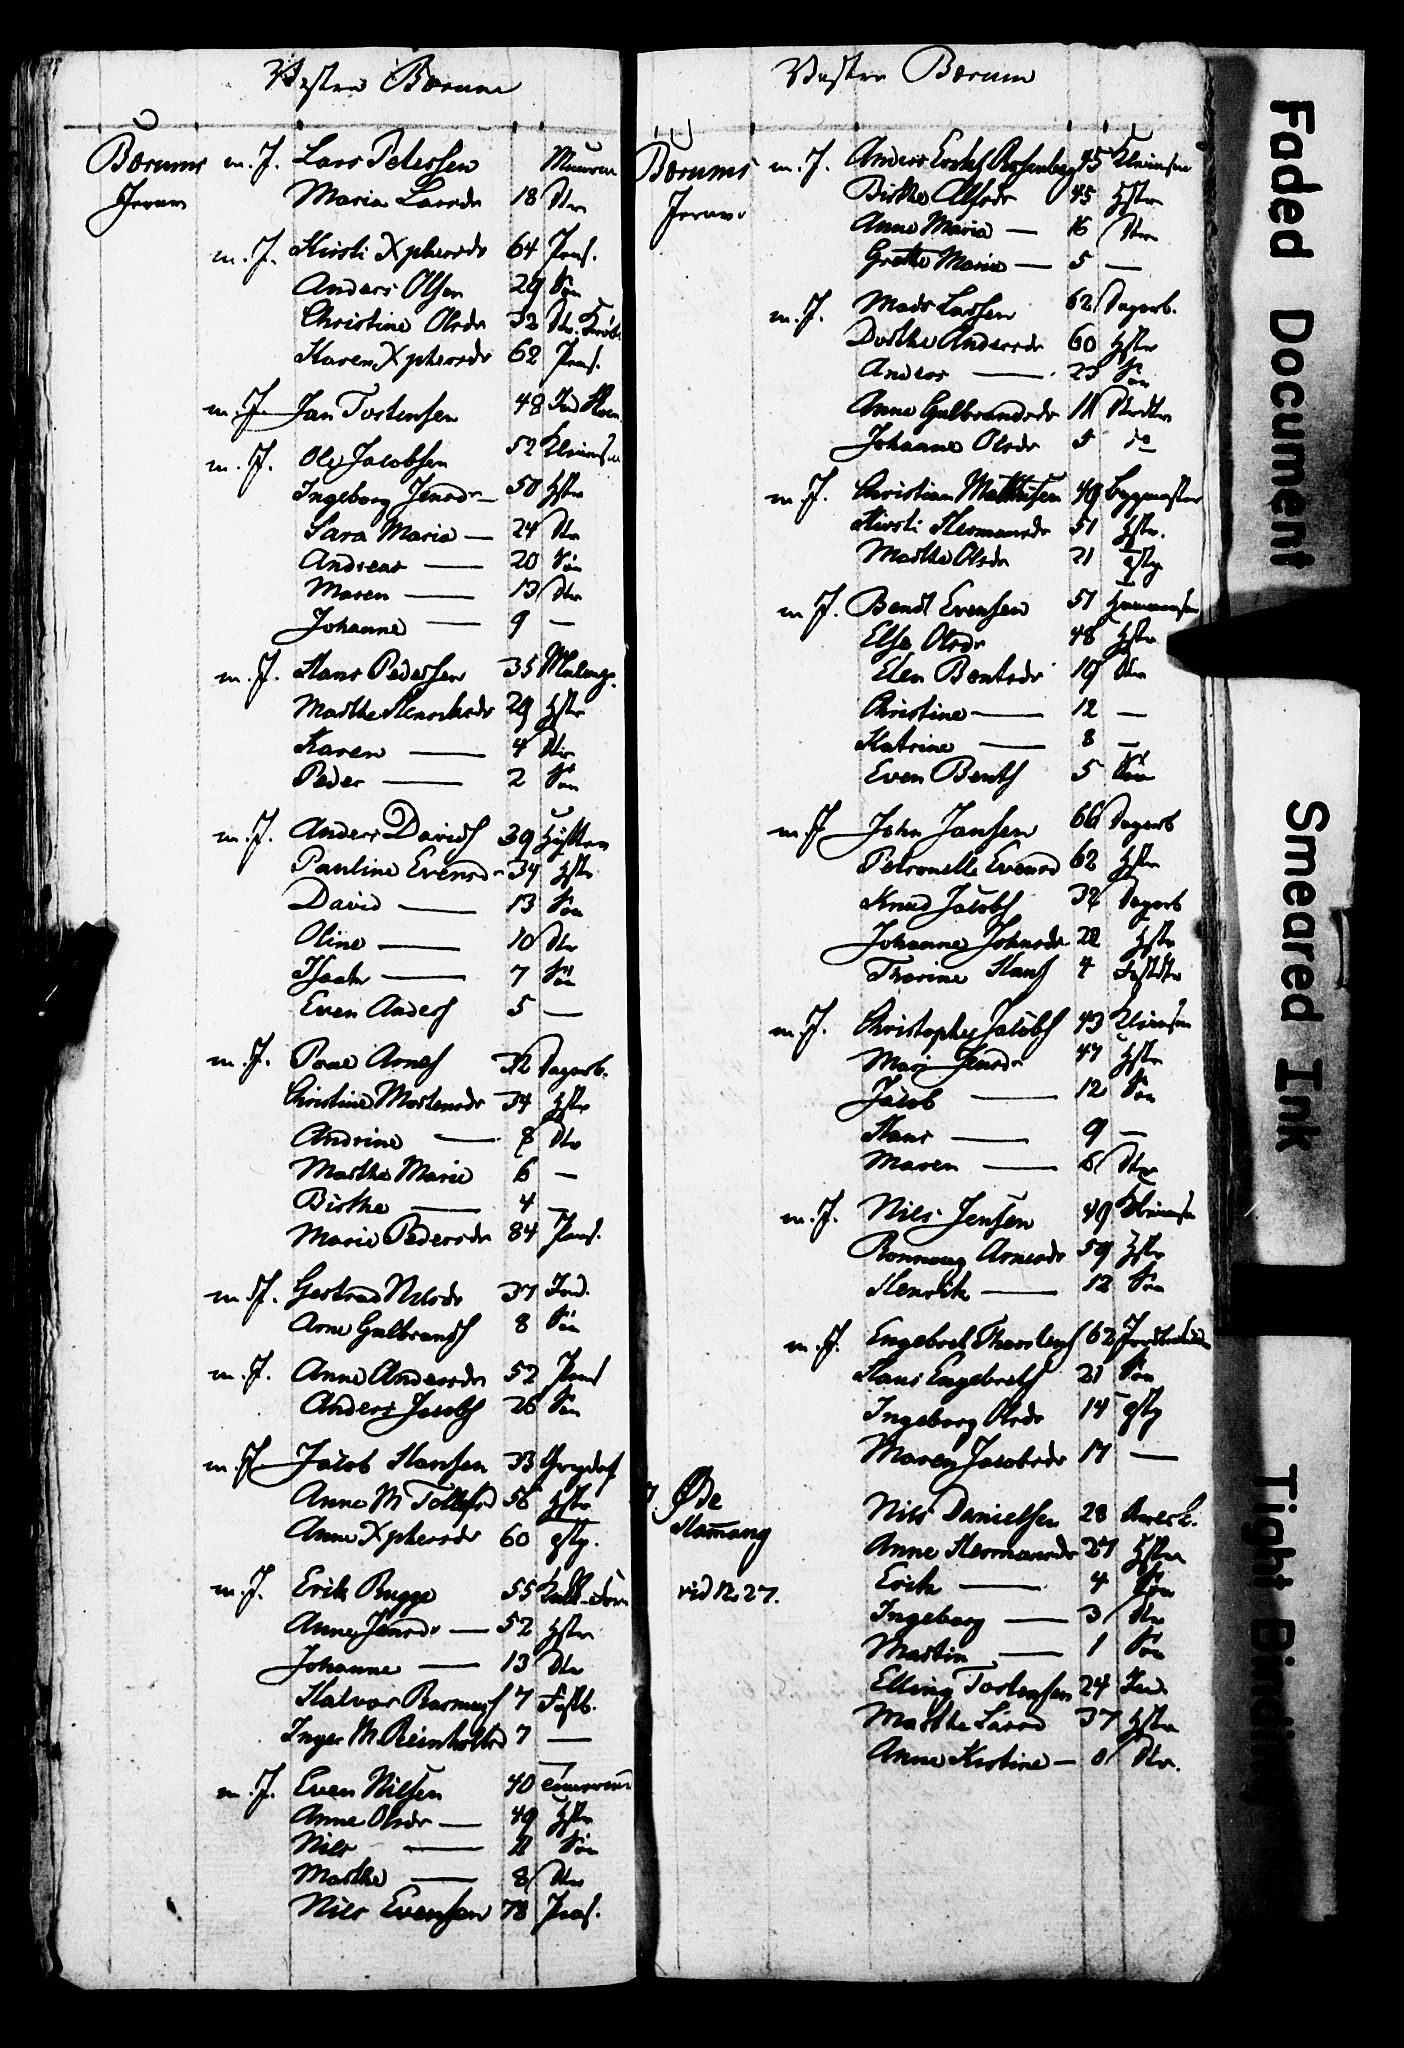 Vestre Bærum
Bærums m. J. Lars Petersen Muurm
Jernv Maria Larsdr 18 Dtr
m. J. Kirsti Xphersdr 64 Pens.
Anders Olsen 29 Søn
Christine Olsdr 32 Dtr.
Karen Xphersdr 62 Pens.
m. J. Jan Tostensen 48 Ind
m. J. Ole Jacobsen 52 Kleinsm
Ingeborg Jensdr 50 Hstr
Sara Maria — 24 Dtr
Andreas — 20 Søn
Maren — 13 Dtr
Johanne — 9 —
m. J. Hans Pedersen 35
Marthe Henriksdr 29 Hstr
Karen — 4 Dtr
Peder — 2 Søn
m. J. Anders Davids 39
Pauline Evensdr 34 Hstr
David — 13 Søn
Oline — 10 Dtr
Isach — 7 Søn
Even Anders 5 —
m. J. Poul Arnes 32 Dagarb.
Christine Mortensdr 34 Hstr
Andrine — 8 Dtr
Marthe Marie 6 —
Birthe — 4 —
Marie Pedersdr 84 Pens.
m. J. Gertrud Nilsdr 37 Ind.
Arne Gulbrands 8 Søn
m. J. Anne Andersdr 52 Pens
Anders Jacobs 26 Søn
m. J. Jacob Hansen 33
Anne M Tollefsd 56 Hstr
Anne Xphersdr 60
m. J. Erik Rugge 55
Anne Jensdr — 52 Hstr
Johanne — 13 Dtr
Halvor Rasmus 7 Fostb.
Inger M Reinholtsd 7 —
m. J. Even Nilsen 40
Anne Olsdr — 49 Hstr
Nils — 11 Søn
Marthe — 8 Dtr
Nils Evensen 78 Pens.
Vestre Bærum
Bærums m. J. Anders Rosenberg 45 Kleinsm
Jernv Birthe Alfsdr 45 Hstr
Anne Maria — 16 Dtr
Grethe Marie — 5 —
m. J. Mads Larsen 62 Dagarb.
Dorthe Andersdr 60 Hstr
Anders — 23 Søn
Anne Gulbrandsdr 11
Johanne Olsdr 5 do
m. J. Christian Mathisen 49 Bygmester
Kirsti Hermansdr 51 Hstr.
Marthe Olsdr 21
m. J. Bendt Evensen 51 Hammersm
Else Olsdr 48 Hstr
Elen Bentsdr 19 Dtr
Christine — 12 —
Katrine — 8 —
Even Bents 5 Søn
m. J. John Jansen 66 Dagarb
Petronelle Evensd 62 Hstr
Knud Jacobs 32 Dagarb
Johanne Johnsdr 22 Hstr
Thorine Hans 4 Fostdtr
m. J. Christopher Jacobs 43 Kleinsm
Mari Jensdr 47 Hstr
Jacob — 12 Søn
Hans — 9 —
Maren — 6 Dtr
m. J. Nils Jensen 49 Kleinsm
Ronnoug Arnesdr 59 Hstr
Henrik — 12 Søn
m. J. Engebret Thorstens 62
Hans Engebrets 21 Søn
Ingeborg Olsdr 14
Maren Jacobsdr 17 —
Øde Nils Danielsen 28
Hamang Anne Hermansdr 27 Hstr
vid No 27. Erik — 4 Søn
Ingeborg — 3 Dtr
Martin — 1 Søn
Elling Tostensen 24 Ind.
Marthe Larsd 37 Hstr
Anne Kirstine — 0 Dtr.
Faded Document
Smeared Ink
Tight Binding